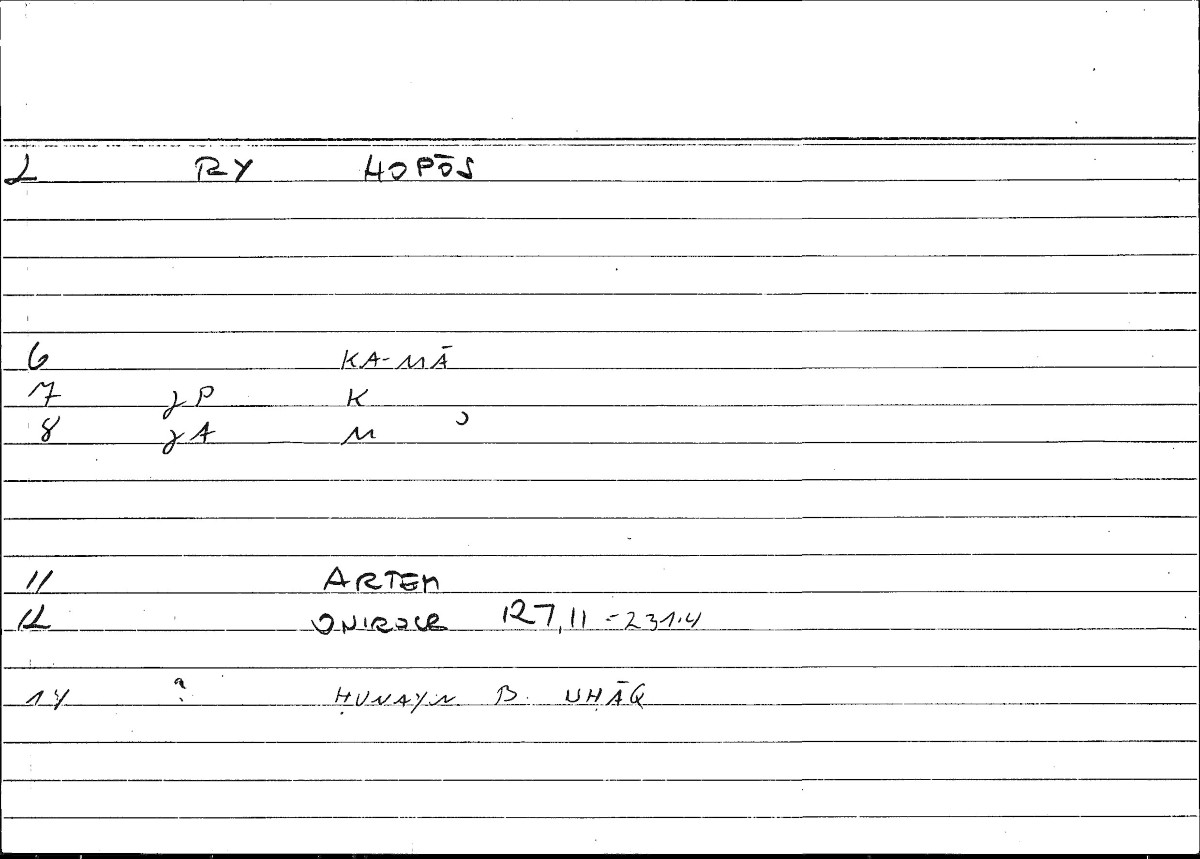 2 RY HOPŌS
6 KA-MĀ
7 γP K
8 γA M
11 ARTEM
12 ONIROCR 127,11 = 231.4
14 ? ḤUNAYN B. ISḤĀQ